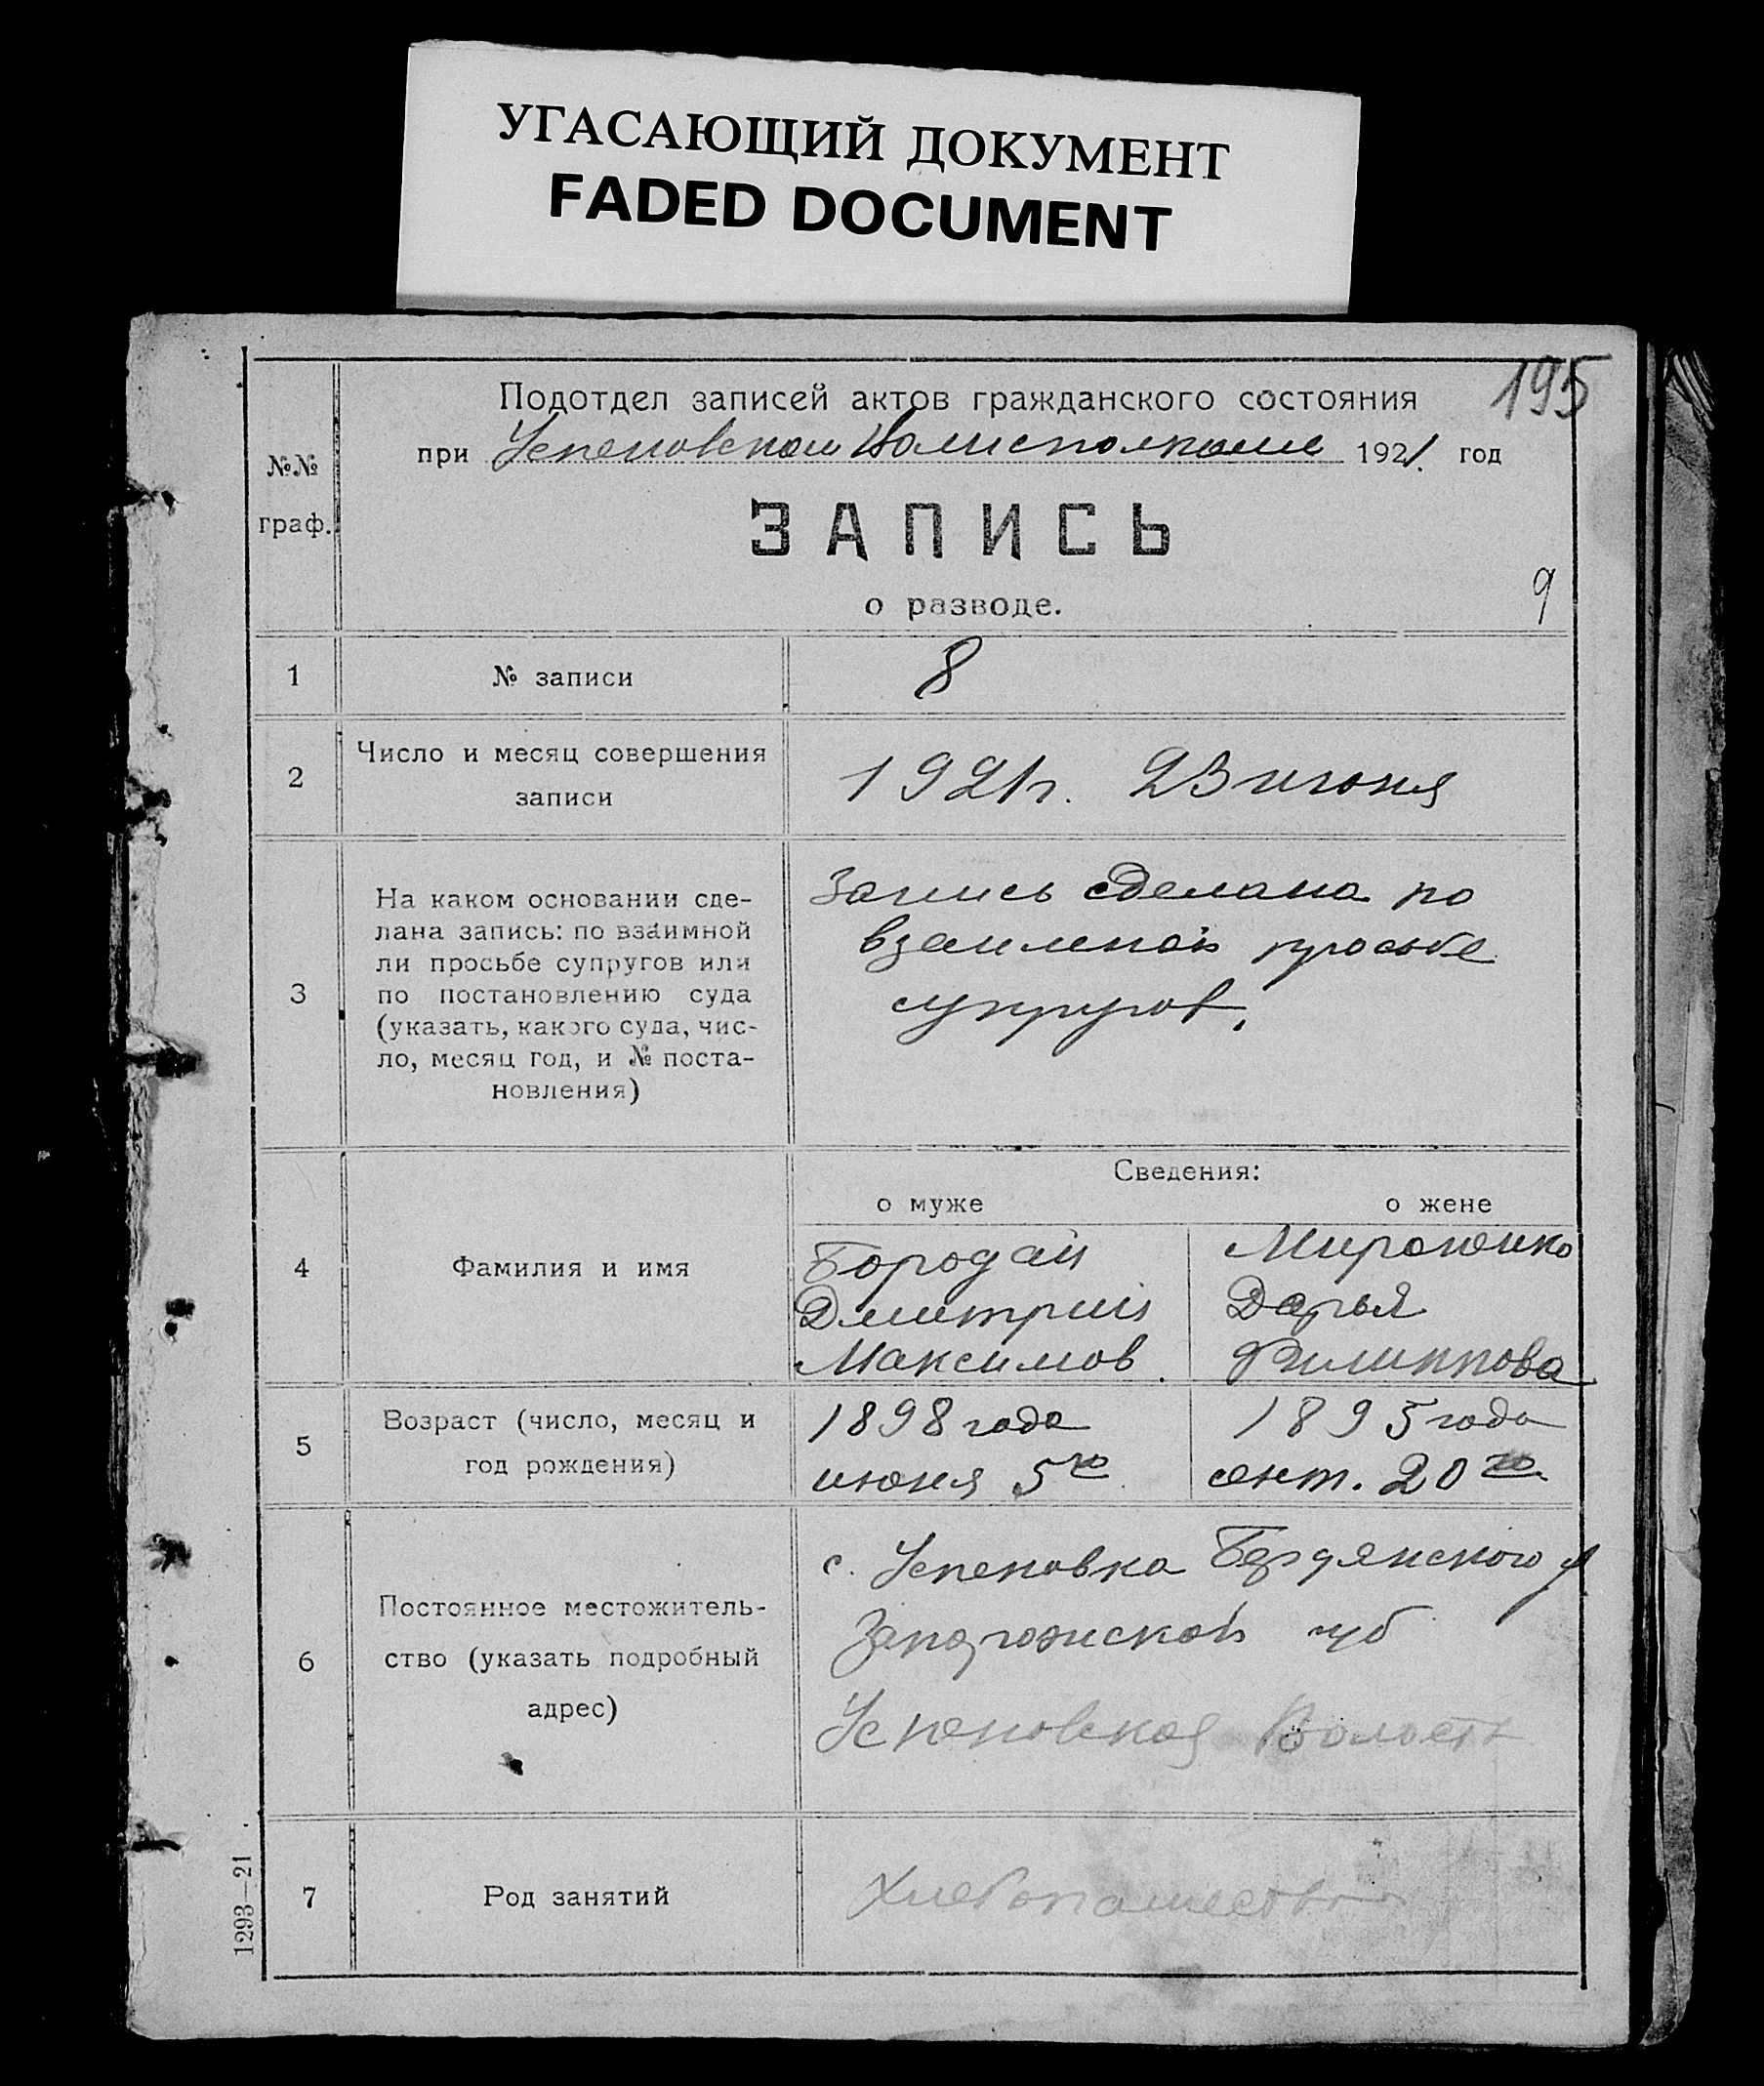 УГАСАЮЩИЙ ДОКУМЕНТ
FADED DOCUMENT
195
Подотдел записей актов гражданского состояния
при Успеновском Волисполкоме 1921. год
№№
граф.
ЗАПИСЬ
о разводе.
9
1 № записи 8
2 Число и месяц совершения
записи
1921г. 23 июня
3 На каком основании сде-
лана запись: по взаимной
ли просьбе супругов или
по постановлению суда
(указать, какого суда, чис-
ло, месяц год, и № поста-
новления)
Запись сделана по
взаимной просьбе
супругов.
Сведения:
о муже о жене
4 Фамилия и имя
Бородай
Дмитрий
Максимов.
Мироненко
Дарья
Филиппова
5 Возраст (число, месяц и
год рождения)
1898 года
июня 5го
1895 года
сент. 20го
6 Постоянное местожитель-
ство (указать подробный
адрес)
с. Успеновка Бердянского у
Запорожской губ
Успеновская Волость
7 Род занятий
Хлебопашество
1293—21